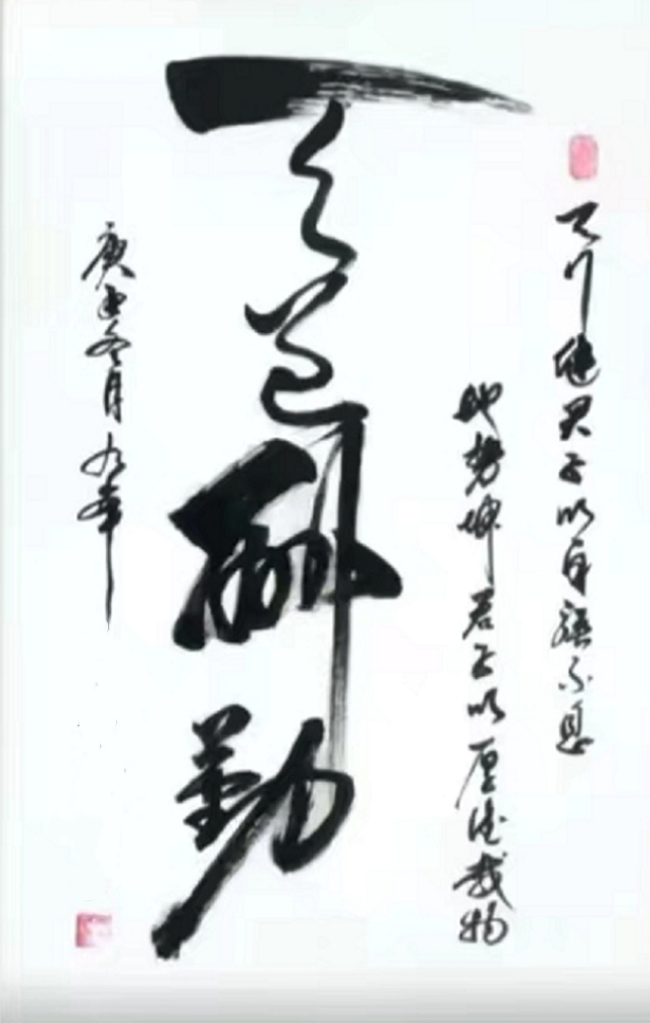 天行健君子以自強不息
地势坤君子以厚德载物
天道酬勤
庚 冬月